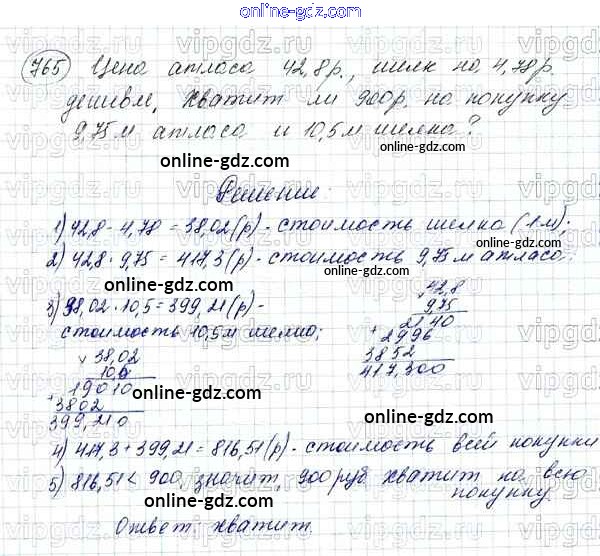 online-gdz.com
765 Цена атласа 42,8р., шелк на 4,78р.
дешевле, хватит ли 900р. на покупку
9,75м атласа и 10,5м шелка?
online-gdz.com
Решение:
online-gdz.com
1) 42,8 - 4,78 = 38,02(р) - стоимость шелка (1м);
2) 42,8 · 9,75 = 417,3(р) - стоимость 9,75м атласа;
online-gdz.com
3) 38,02 · 10,5 = 399,21(р) -
стоимость 10,5м шелка;
× 42,8
9,75
2140
+ 2996
3852
417,300
online-gdz.com
× 38,02
10,5
19010
+ 3802
399,210
online-gdz.com
online-gdz.com
4) 417,3 + 399,21 = 816,51(р) - стоимость всей покупки
online-gdz.com
5) 816,51 < 900, значит, 900 руб хватит на всю
покупку.
online-gdz.com
Ответ: хватит.
online-gdz.com